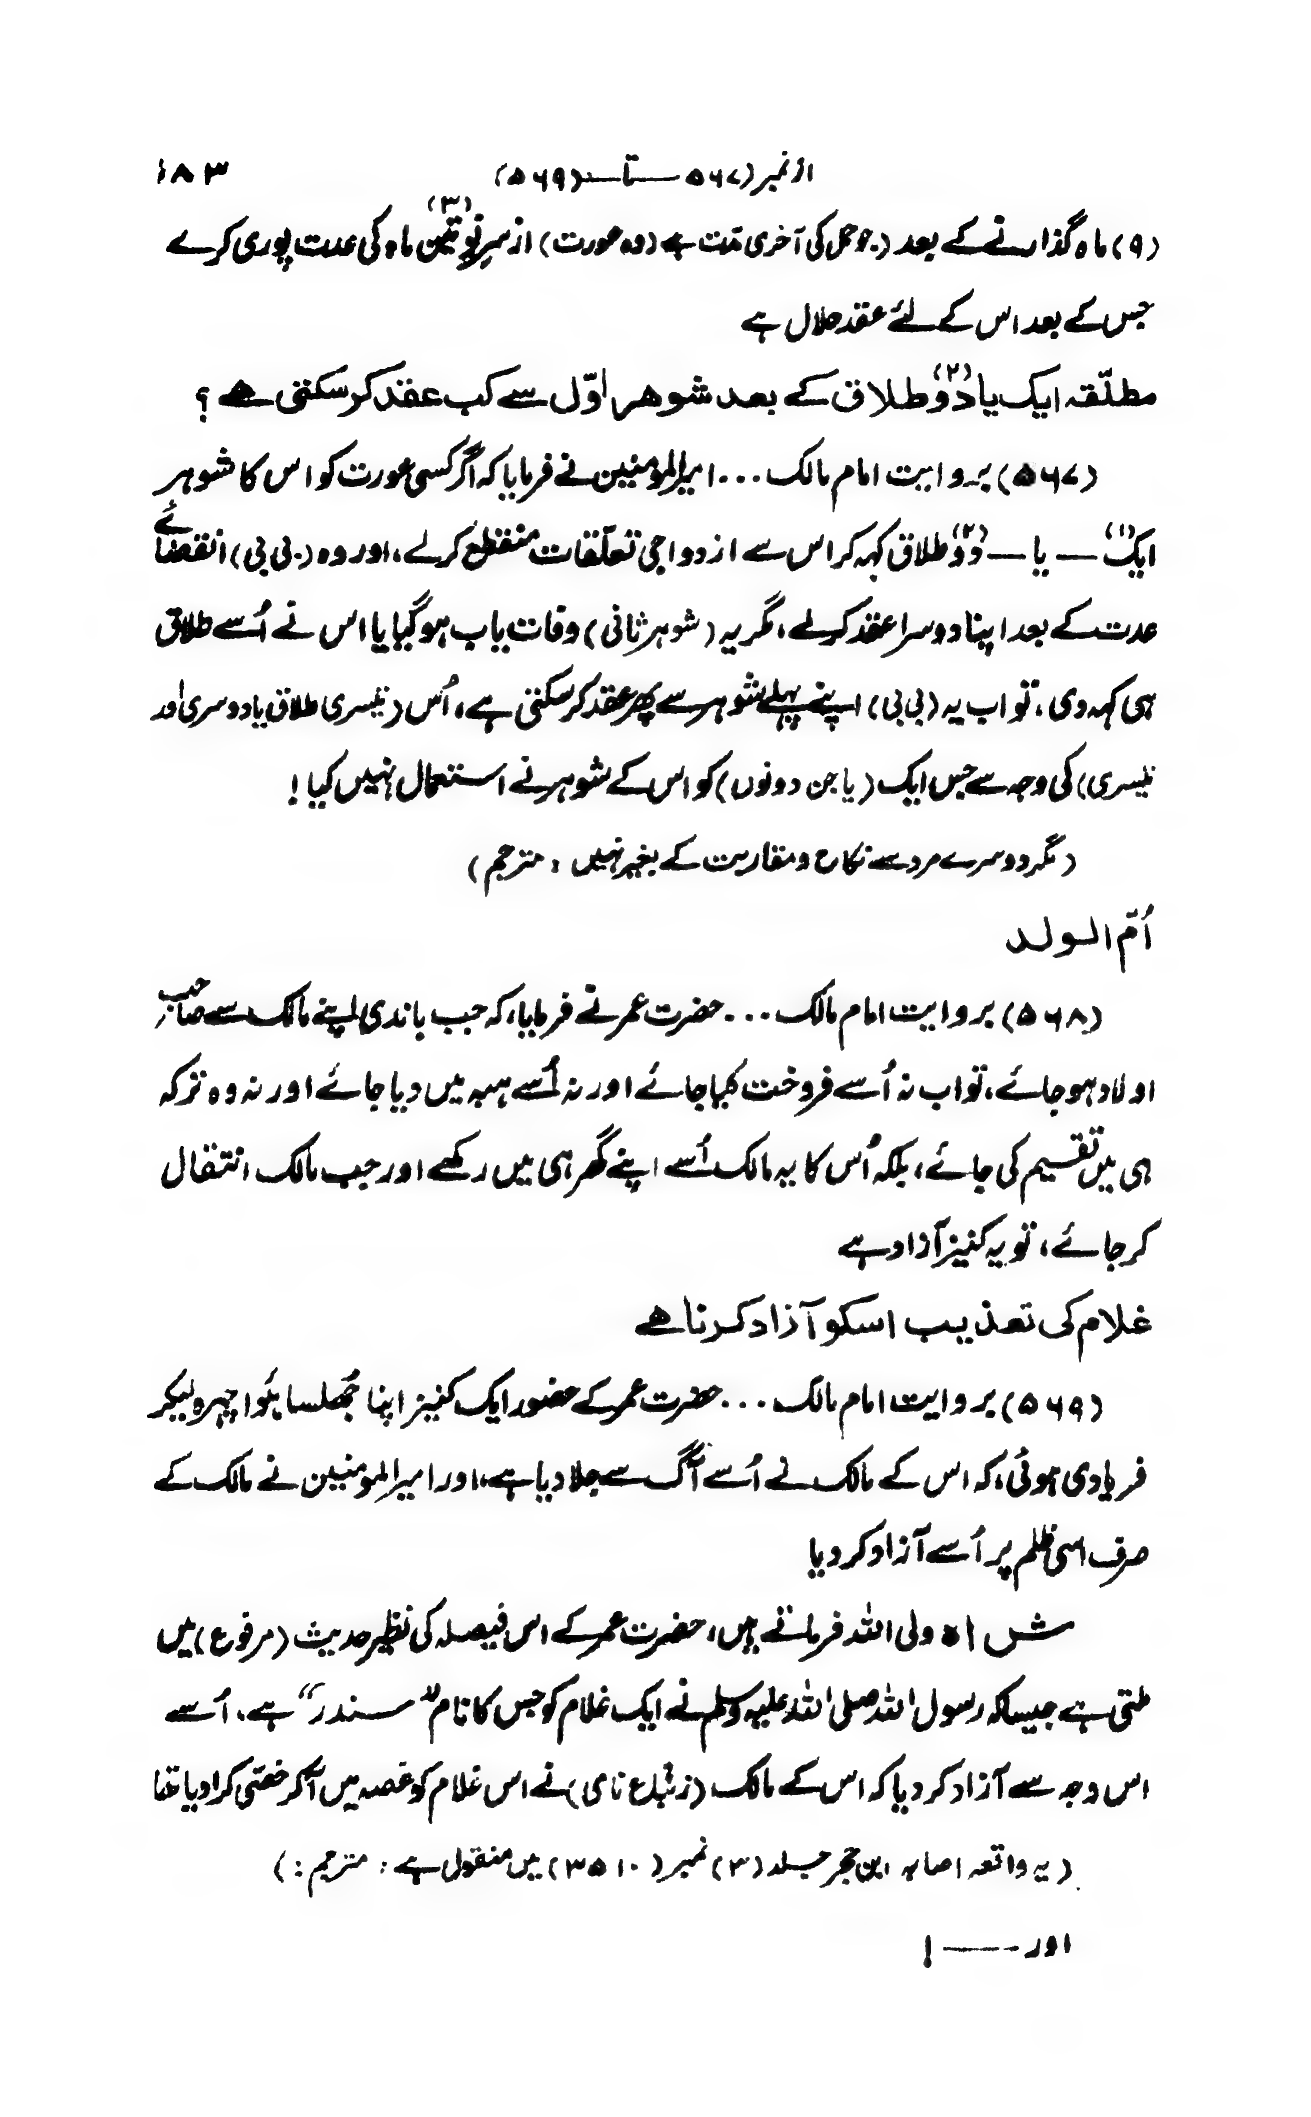 از نمبر (۵۶۷ ــــ تا ــــ (۵۶۹) ۱۸۳
(۹) ماہ گذارنے کے بعد (جو حمل کی آخری مدّت ہے (وہ عورت) از سرِ نو تین (۳) ماہ کی عدت پوری کرے
جس کے بعد اس کے لئے عقد حلال ہے
مطلّقہ ایک یا دو (۲) طلاق کے بعد شوہر اوّل سے کب عقد کر سکتی ہے ؟
(۵۶۷) بروایت امام مالک ... امیر المؤمنین نے فرمایا کہ اگر کسی عورت کو اس کا شوہر
ایک (۱) ـــ یا ـــ دو (۲) طلاق کہہ کر اس سے ازدواجی تعلّقات منقطع کر لے، اور وہ (بی بی) انقضائے
عدت کے بعد اپنا دوسرا عقد کر لے، مگر یہ (شوہر ثانی) وفات یاب ہو گیا یا اس نے اُسے طلاق
ہی کہہ دی، تو اب یہ (بی بی) اپنے پہلے شوہر سے پھر عقد کر سکتی ہے، اُس (تیسری طلاق یا دوسری اور
تیسری) کی وجہ سے جس ایک (یا جن دونوں) کو اس کے شوہر نے استعمال نہیں کیا !
(مگر دوسرے مرد سے نکاح و مقاربت کے بغیر نہیں : مترجم)
اُمّ الولد
(۵۶۸) بروایت امام مالک ... حضرت عمر نے فرمایا، کہ جب باندی اپنے مالک سے صاحب
اولاد ہو جائے، تو اب نہ اُسے فروخت کیا جائے اور نہ اُسے ہبہ میں دیا جائے اور نہ وہ ترکہ
ہی میں تقسیم کی جائے، بلکہ اُس کا یہ مالک اُسے اپنے گھر ہی میں رکھے اور جب مالک انتقال
کر جائے، تو یہ کنیز آزاد ہے
غلام کی تعذیب اسکو آزاد کرنا ہے
(۵۶۹) بروایت امام مالک ... حضرت عمر کے حضور ایک کنیز اپنا جُھلسا ہُوا چہرہ لیکر
فریادی ہوئی، کہ اس کے مالک نے اُسے آگ سے جلا دیا ہے، اور امیر المومنین نے مالک کے
صرف اسی ظلم پر اُسے آزاد کر دیا
ش اہ ولی اللہ فرماتے ہیں، حضرت عمر کے اس فیصلہ کی نظیر حدیث (مرفوع) میں
ملتی ہے جیسا کہ رسول اللہ صلی اللہ علیہ وسلم نے ایک غلام کو جس کا نام ”سندر“ ہے، اُسے
اس وجہ سے آزاد کر دیا کہ اس کے مالک (زنباع نامی) نے اس غلام کو غصہ میں آکر خصّی کرا دیا تھا
(یہ واقعہ اصابہ ابن حجر جلد (۳) نمبر (۳۵۱۰) میں منقول ہے : مترجم :)
اور ـــــ !